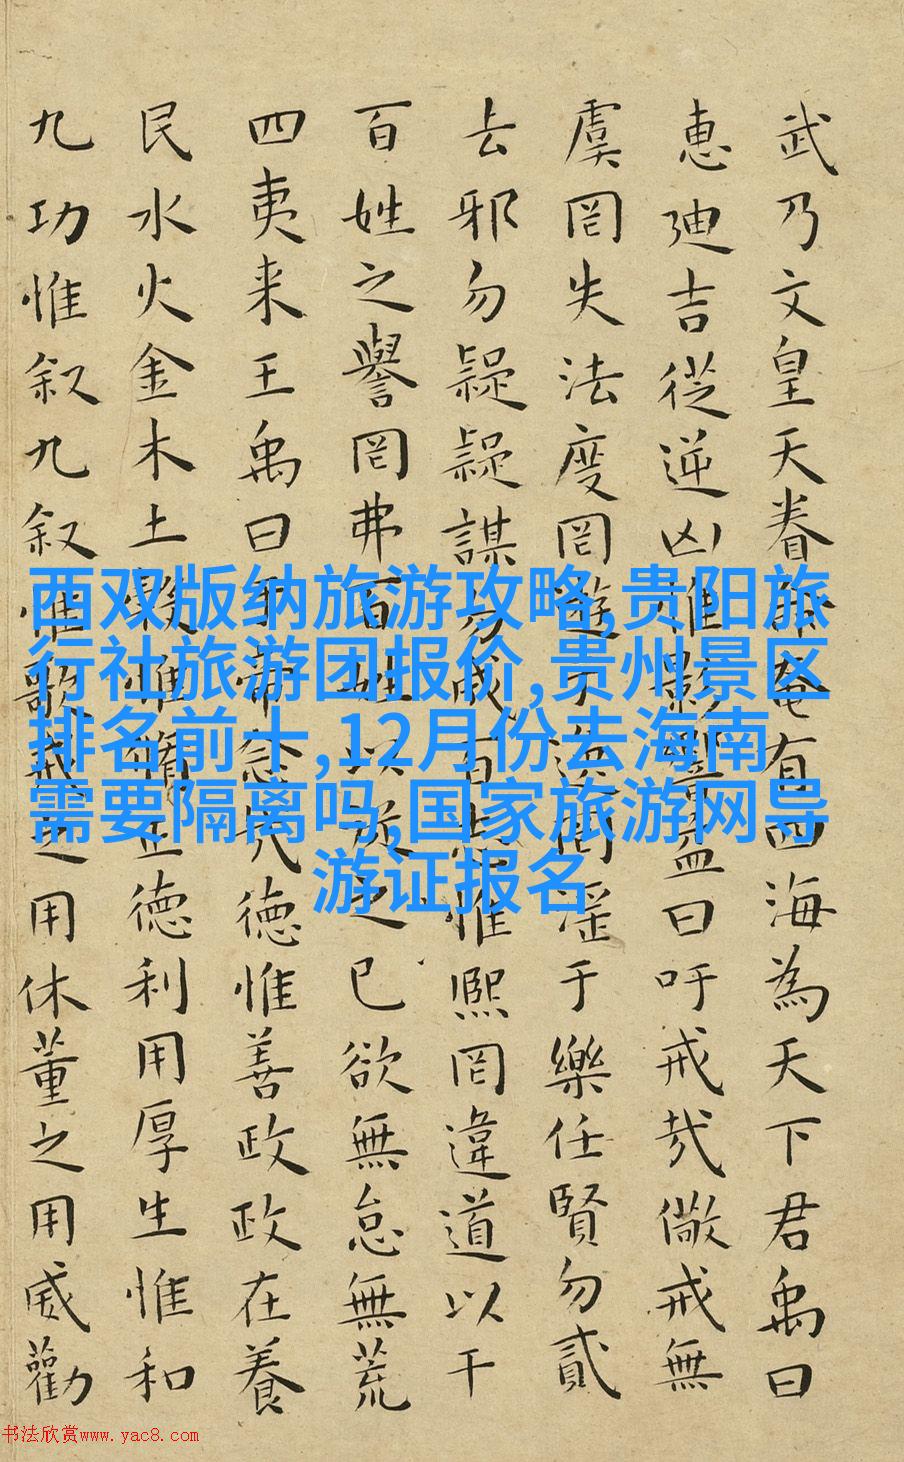 武乃文皇天眷命奄有四海為天下君禹曰
惠迪吉從逆凶惟影響益曰吁戒哉儆戒無
虞罔失法度罔遊于逸罔淫于樂任賢勿貳
去邪勿疑疑謀勿成百志惟熙罔違道以干
百姓之譽罔弗百姓以從之已欲無怠無荒
四夷来王禹曰於帝念哉德惟善政政在養
民水火金木土穀惟脩正德利用厚生惟和
九功惟叙九叙惟歌戒之用休董之用威勸
西双版纳旅游攻略,贵阳旅
行社旅游团报价,贵州景区
排名前十,12月份去海南
需要隔离吗,国家旅游网导
游证报名
书法欣赏www.yac8.com